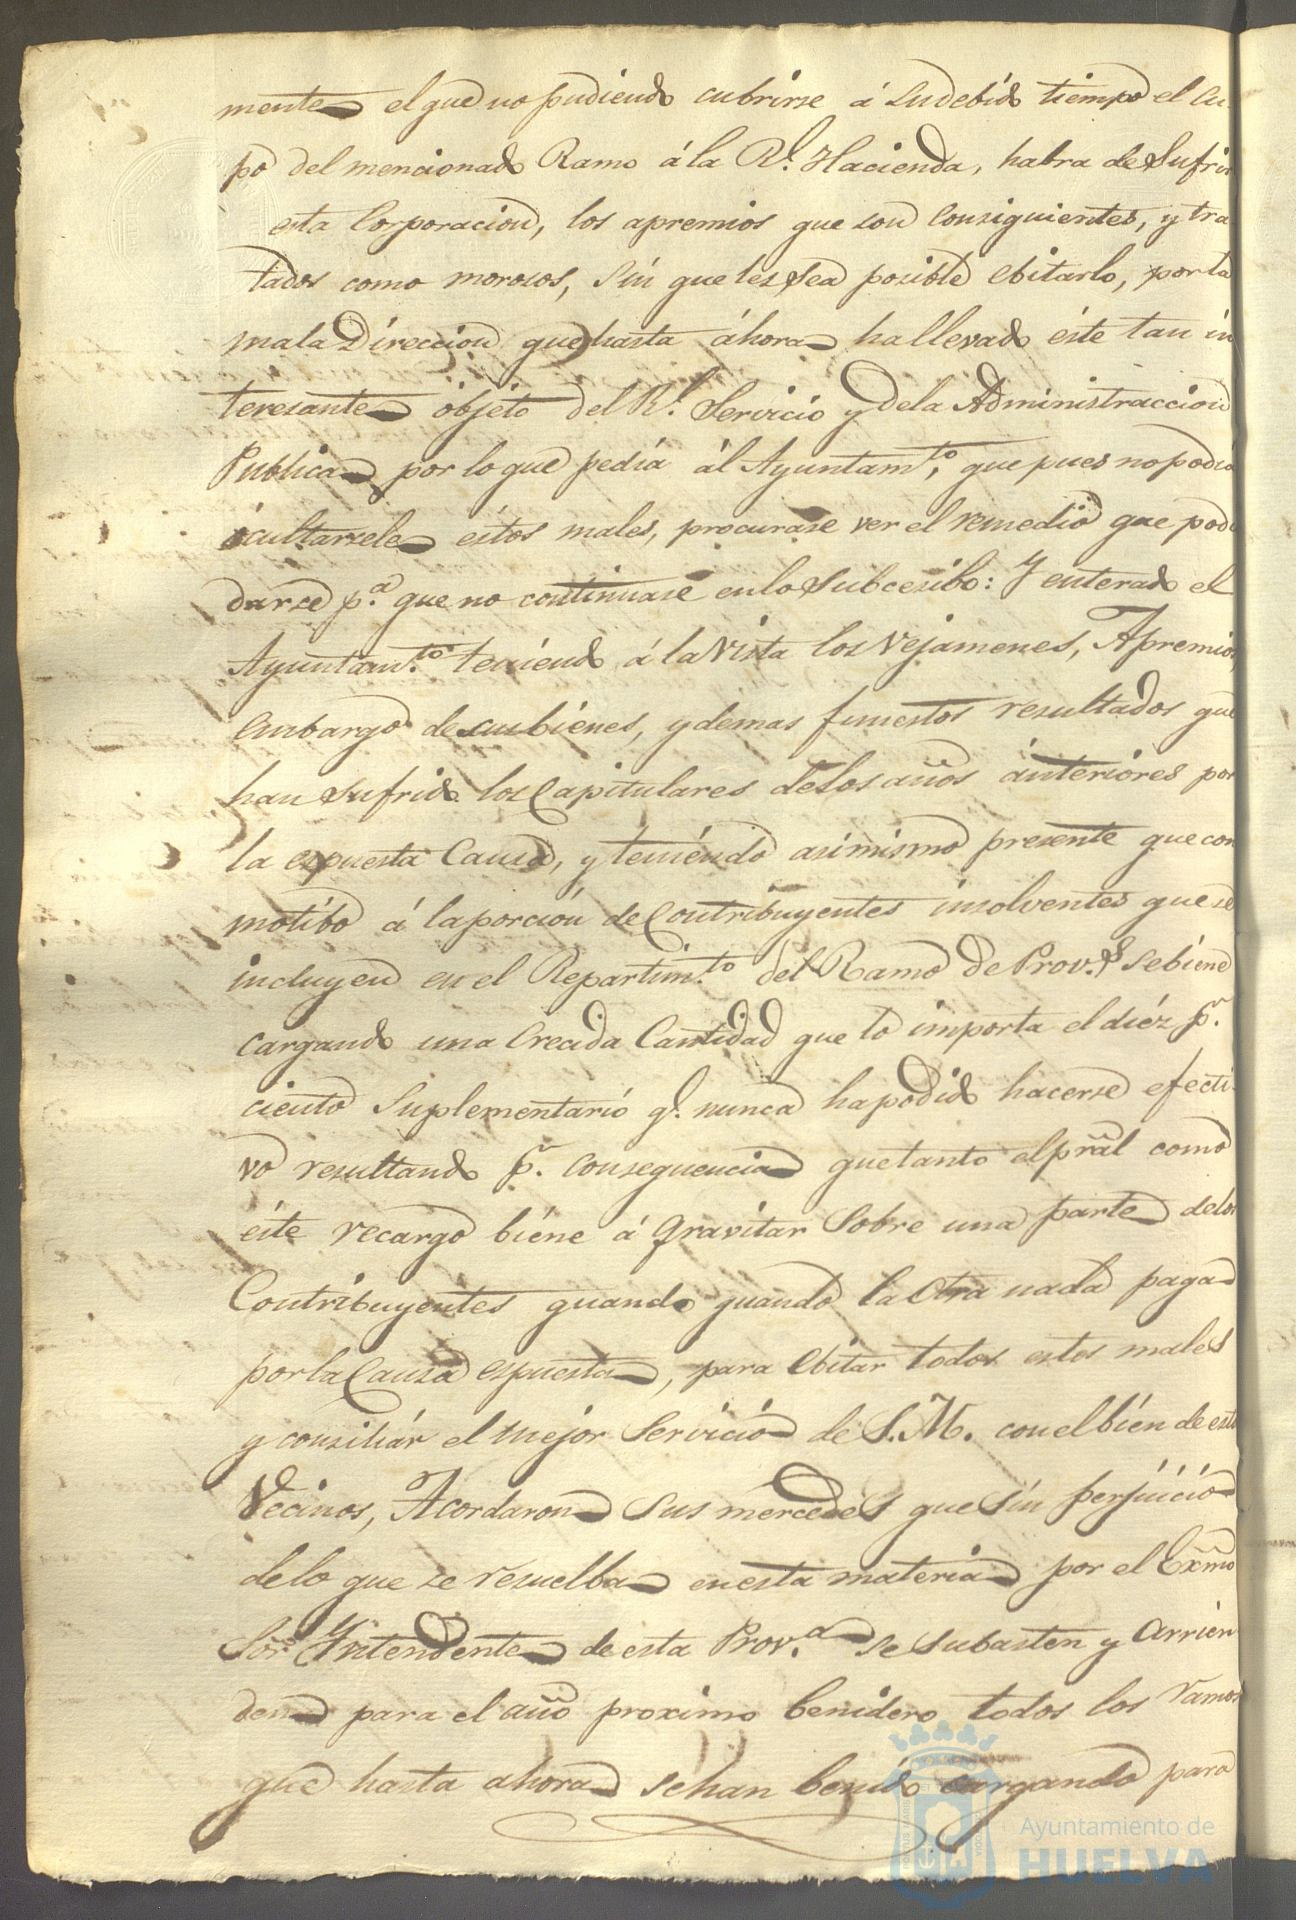 mente el que no pudiendo cubrirse á su debido tiempo el cu
po del mencionado Ramo á la Rl. Hacienda, habra de Sufrir
esta Corporacion, los apremios que son Consiguientes, y tra
tados como morosos, Sin que les Sea posible ebitarlo, por la
mala Direccion que hasta áhora ha llevado éste tan in
teresante óbjeto del Rl. Servicio y dela Administraccion
Publica, por lo que pedia ál Ayuntamto, que pues no podia
ócultarsele éstos males, procurase ver el remedio que podia
darse pa. que no continuase en lo Subcesibo: Y enterado el
Ayuntamto. teniendo á la Vista los Vejamenes, Apremios,
Embargo de sus bienes, y demas funestos resultados que
han Sufrido los Capitulares delos años ánteriores por
la espuesta Causa, y teniendo asimismo presente que con
motibo á la porcion de Contribuyentes insolventes que se
incluyen en el Repartimto. del Ramo de Provs. se biene
cargando una Crecida Cantidad que lo importa el diéz pr.
ciento Suplementario q. nunca ha podido hacerse efecti
vo resultando pr. consequencia que tanto el pral como
éste recargo biene á Gravitar Sobre una parte delos
Contribuyentes quando quando la Otra nada paga
por la Causa espuesta, para Ebitar todos estos males
y consiliár el mejor Servicio de S.M. con el bien de estos
Vecinos, Acordaron Sus mercedes que Sin perjuicio
delo que se resuelba en esta materia por el Exmo
Sor. Yntendente de esta Prova. se Subasten y Arrien
den para el año proximo benidero todos los ramos
que hasta ahora se han benido cargando para
Ayuntamiento de
HUELVA